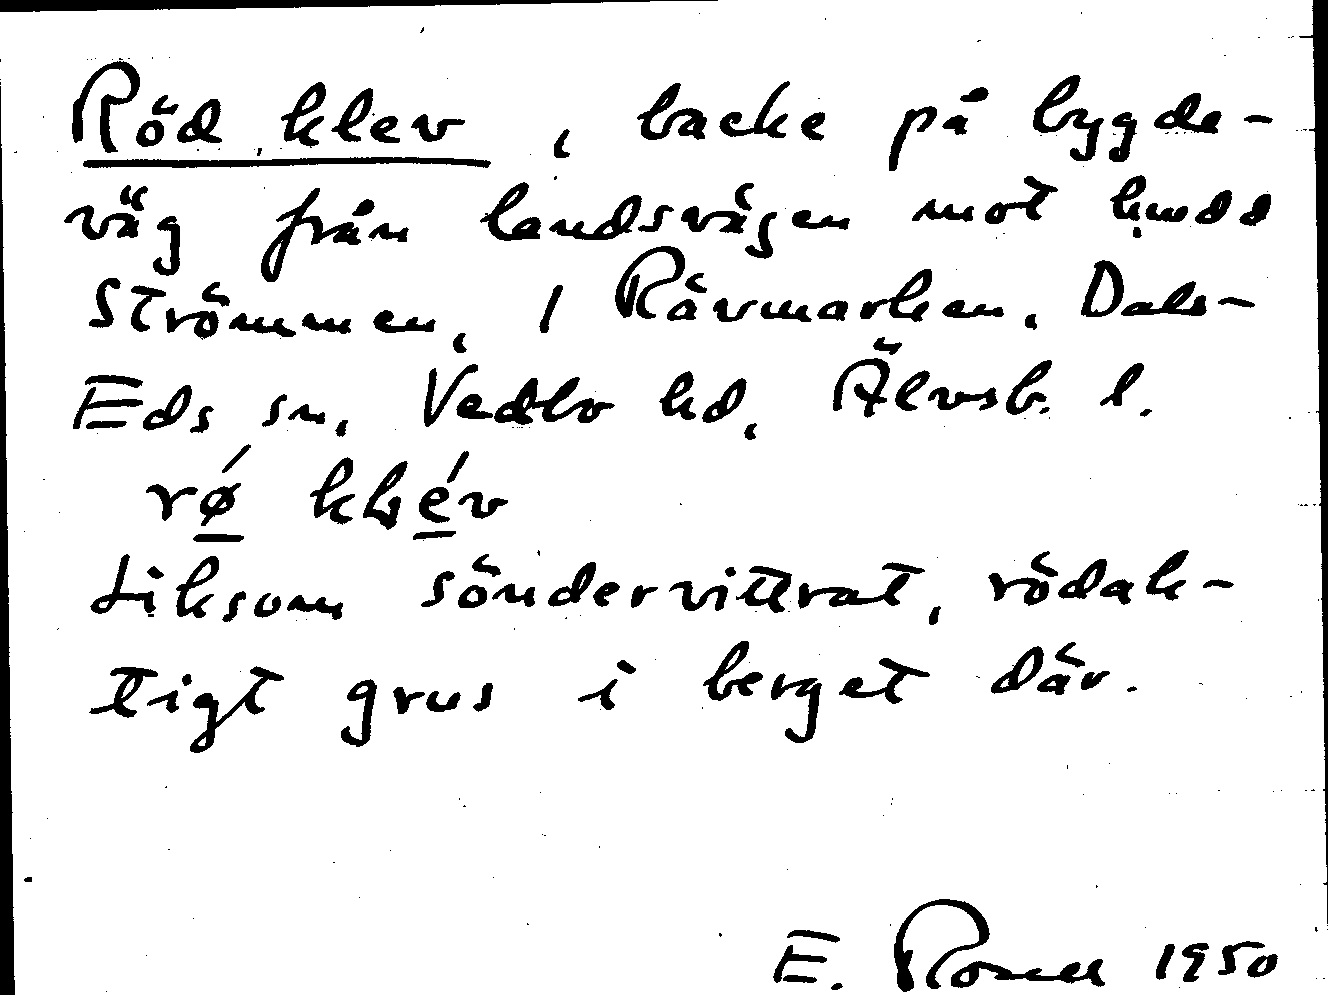 Röd klev, backe på bygde-
väg från landsvägen mot
Strömmen, i Rävmarken, Dals-
Eds sn, Vedbo hd, Älvsb. l.
rǿ klév
Liksom söndervittrat, rödak-
tigt grus i berget där.
E. 1950